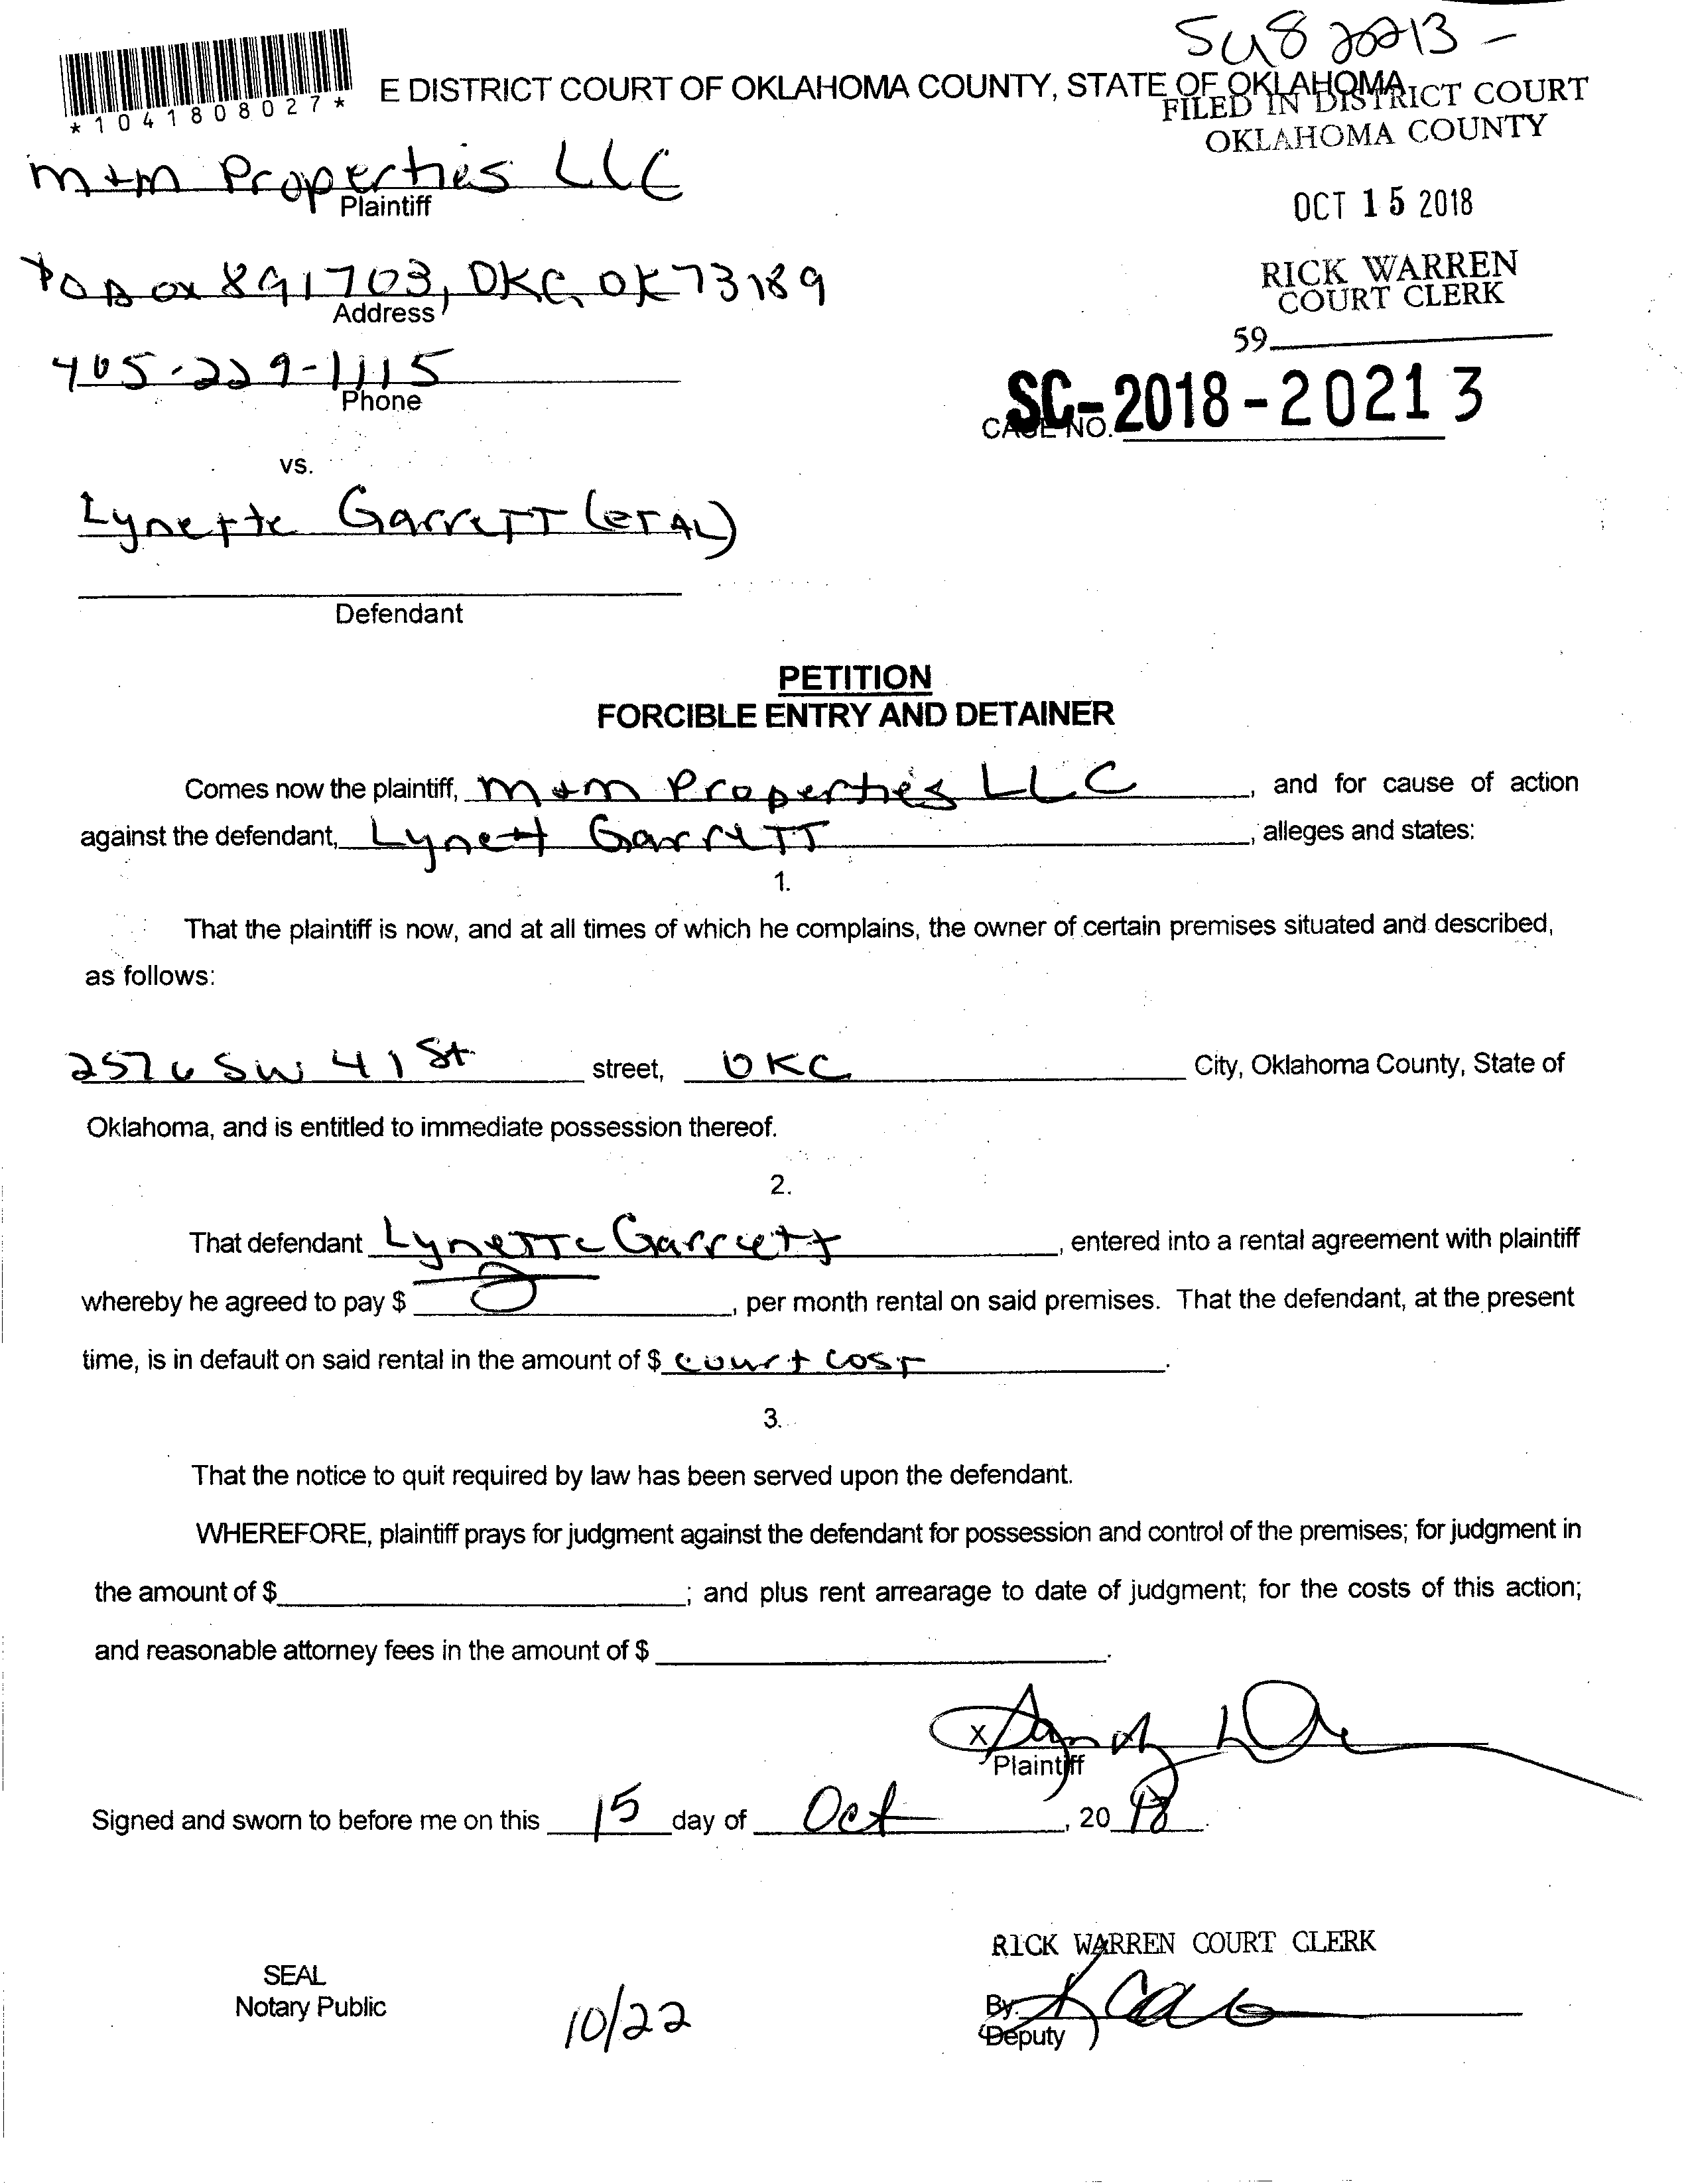 *1041808027*
E DISTRICT COURT OF OKLAHOMA COUNTY, STATE OF OKLAHOMA
FILED IN DISTRICT COURT
OKLAHOMA COUNTY
M+M Properties LLC
Plaintiff
OCT 15 2018
PO Box 891703, OKC, OK 73189
Address
RICK WARREN
COURT CLERK
59
405-229-1115
Phone
CASE NO. SC-2018-20213
vs.
Lynette Garrett (et AL)
Defendant
PETITION
FORCIBLE ENTRY AND DETAINER
Comes now the plaintiff, M+M Properties LLC, and for cause of action
against the defendant, Lynett Garrett, alleges and states:
1.
That the plaintiff is now, and at all times of which he complains, the owner of certain premises situated and described,
as follows:
2576 SW 41 St street, OKC City, Oklahoma County, State of
Oklahoma, and is entitled to immediate possession thereof.
2.
That defendant Lynette Garrett, entered into a rental agreement with plaintiff
whereby he agreed to pay $, per month rental on said premises. That the defendant, at the present
time, is in default on said rental in the amount of $ court cost.
3.
That the notice to quit required by law has been served upon the defendant.
WHEREFORE, plaintiff prays for judgment against the defendant for possession and control of the premises; for judgment in
the amount of $; and plus rent arrearage to date of judgment; for the costs of this action;
and reasonable attorney fees in the amount of $.
X
Plaintiff
Signed and sworn to before me on this 15 day of Oct, 20 18.
RICK WARREN COURT CLERK
SEAL
Notary Public
10/22
By:
Deputy